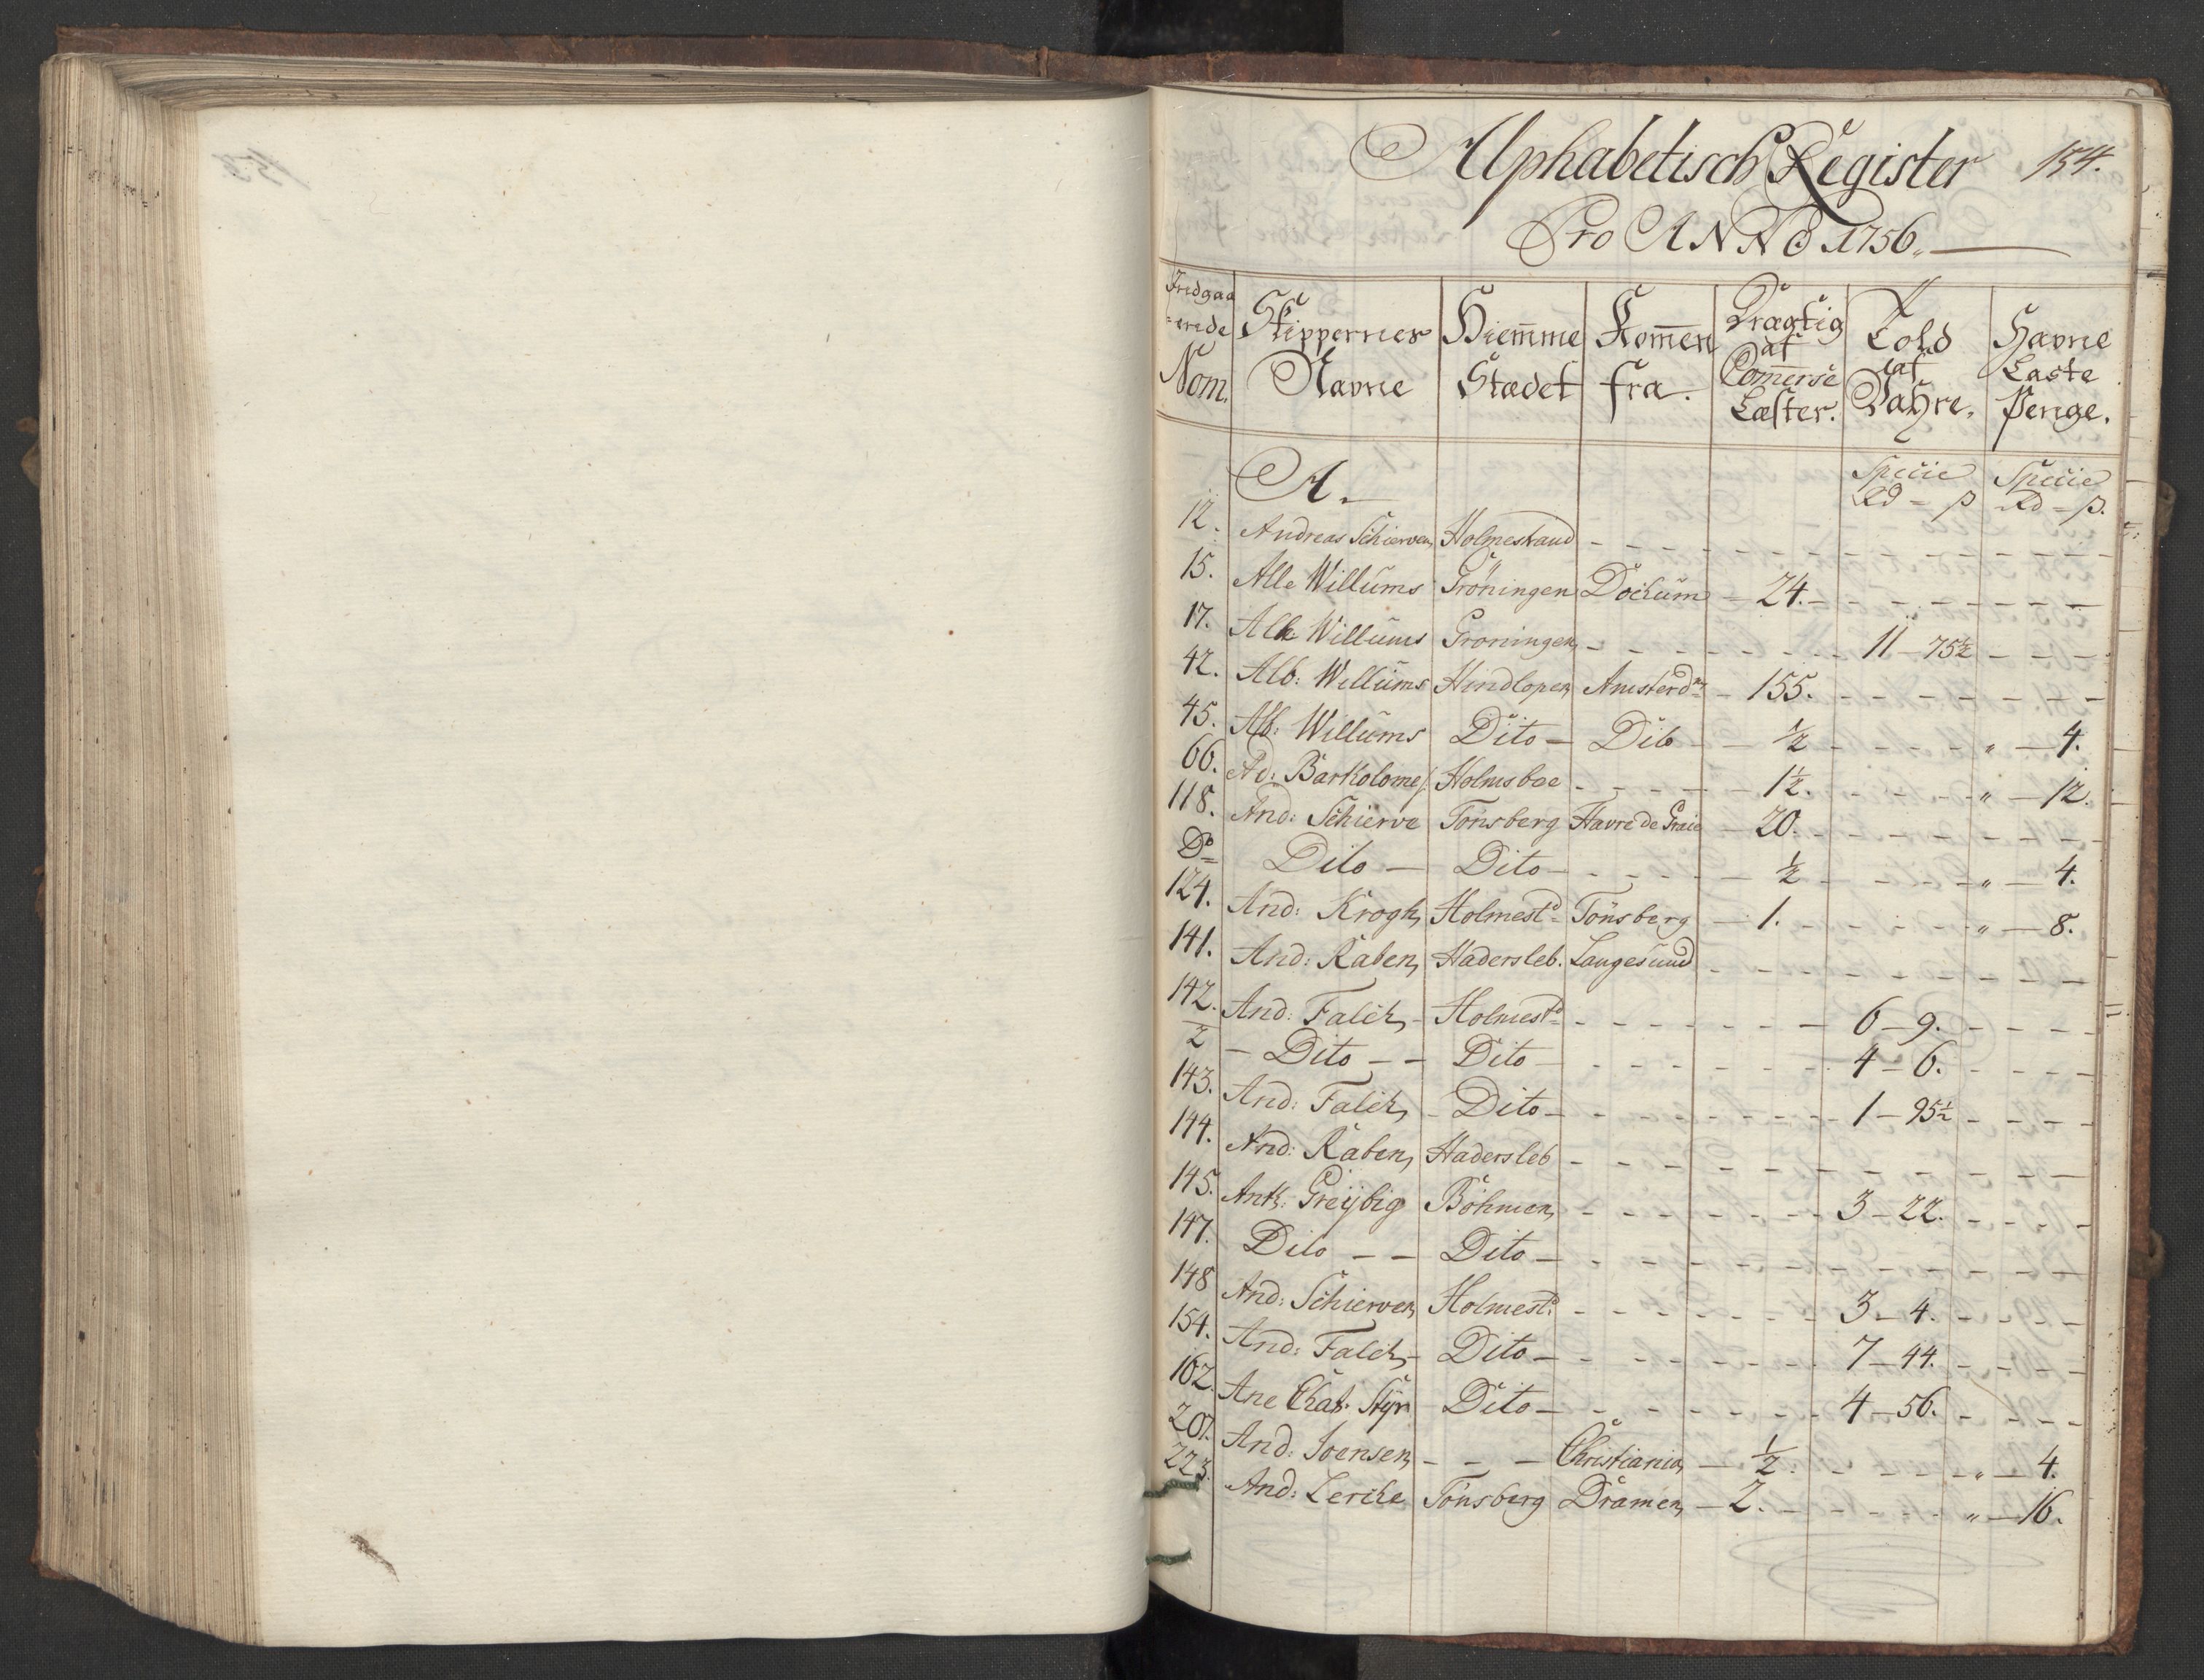 Alphabetisch Register 154.
Pro ANNO 1756.
Indgaaerede Nom. Skippernes Navne Hiemme Stædet Kommen fra. Drægtig af Commerse Læster. Told af Vahre. Havne Laste Penge.
A. Specie Rd - ß Specie Rd - ß.
12. Andreas Schierven Holmestrand
15. Alle Willums Gröningen Dockum 24.
17. Alle Willums Groningen 11 - 75½
42. Alb: Willums Hindlopen Amsterdm 155.
45. Alb: Willums Dito Dito ½ " - 4.
66. Ad: Bartolome/: Holmsboe 1½. " - 12.
118. And: Schierve Tönsberg Havre de Graie 20.
Do Dito Dito ½ " - 4.
124. And: Krogh Holmestd Tönsberg 1. " - 8.
141. And: Raben Hadersleb. Langesund
142. And: Falck Holmestd 6 - 9.
2 Dito Dito 4 - 6.
143. And: Falck Dito 1 - 95½
144. And: Raben Hadersleb
145. Anth: Greybig Böhmen 3 - 22.
147. Dito Dito
148 And: Schierven Holmestd: 3 - 4.
154. And: Falck Dito 7 - 44.
162. Ane Chat: Styr Dito 4 - 56.
201. And: Joensen Christiania ½. " - 4.
223. And: Lercke Tönsberg Dramen 2. " - 16.